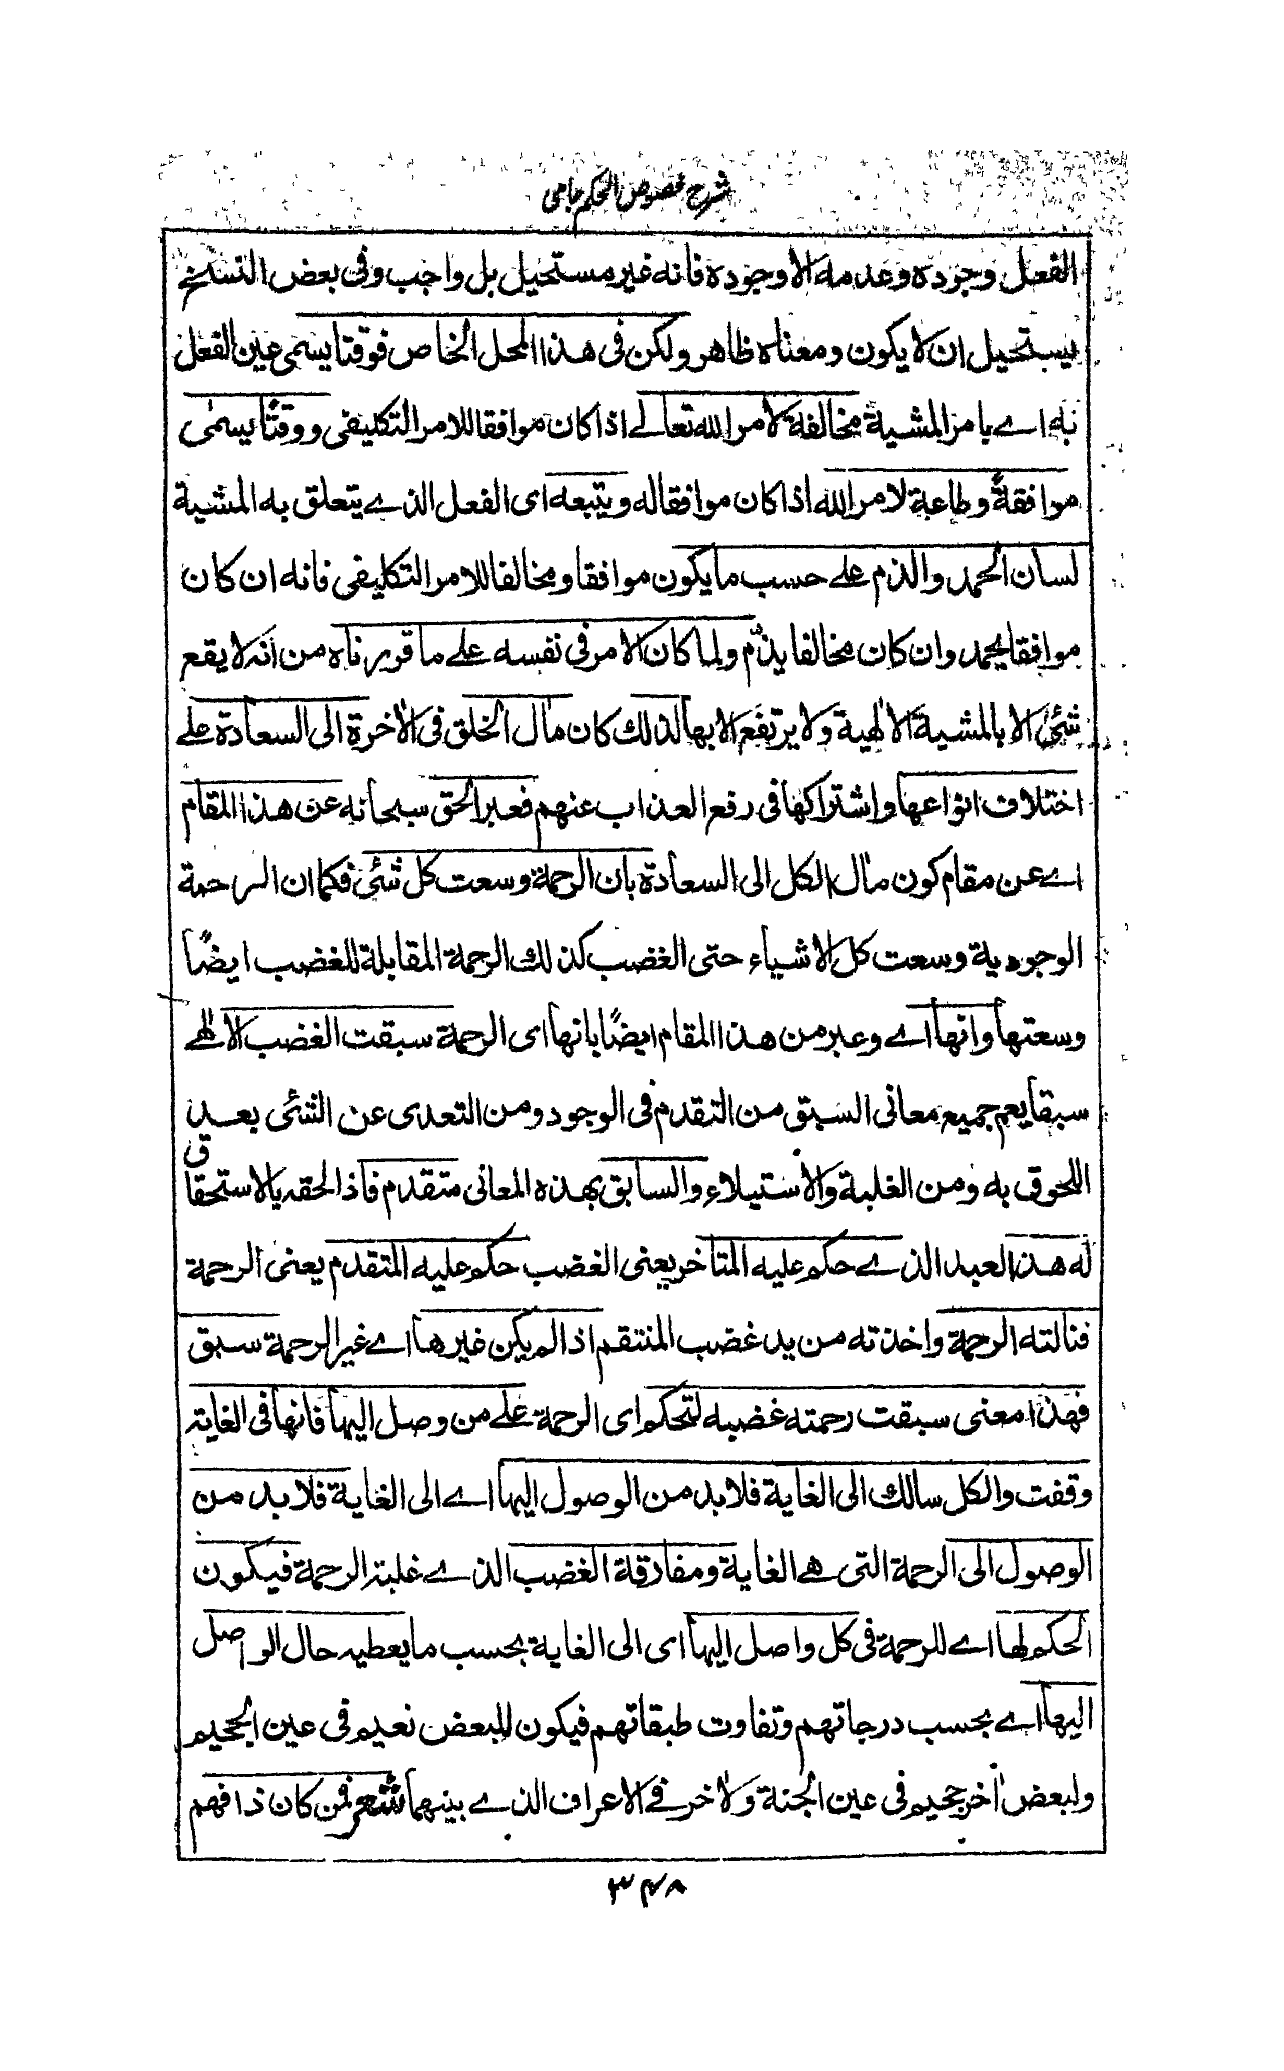 شرح فصوص الحكم جامى
الفعل وجوده وعدمه الا وجوده فانه غير مستحيل بل واجب وفى بعض النسخ
يستحيل ان لا يكون ومعناه ظاهر ولكن فى هذا المحل الخاص فوقتا يسمى عين الفعل
نبه اے بامر المشية مخالفة لامر الله تعالے اذا كان موافقا للامر التكليفى ووقتًا يسمى
موافقةً وطاعة لامر الله اذا كان موافقا له ويتبعه اى الفعل الذے يتعلق به المشية
لسان الحمد والذم علے حسب ما يكون موافقا ومخالفا للامر التكليفى فانه ان كان
موافقا يحمد وان كان مخالفا يذم ولما كان الامر فى نفسه علے ما قررناه من انه لا يقع
شئ الا بالمشية الالهية ولا يرتفع الا بها لذلك كان مآل الخلق فى الآخرة الى السعادة علے
اختلاف انواعها واشتراكها فى رفع العذاب عنهم فعبر الحق سبحانه عن هذا المقام
اے عن مقام كون مآل الكل الى السعادة بان الرحمة وسعت كل شئ فكما ان الرحمة
الوجودية وسعت كل الاشياء حتى الغضب كذلك الرحمة المقابلة للغضب ايضًا
وسعتها وانها اے وعبر من هذا المقام ايضًا بانها اى الرحمة سبقت الغضب الالٰهے
سبقا يعم جميع معانى السبق من التقدم فى الوجود ومن التعدى عن الشئ بعد
اللحوق به ومن الغلبة والاستيلاء والسابق بهذه المعانى متقدم فاذا لحقه بالاستحقاق
له هذا العبد الذے حكم عليه المتاخر يعنى الغضب حكم عليه المتقدم يعنى الرحمة
فنالته الرحمة واخذته من يد غضب المنتقم اذ الم يكن غيرها اے غير الرحمة سبق
فهذا معنى سبقت رحمته غضبه لتحكم اى الرحمة علے من وصل اليها فانها فى الغاية
وقفت والكل سالك الى الغاية فلا بد من الوصول اليها اے الى الغاية فلا بد من
الوصول الى الرحمة التى هے الغاية ومفارقة الغضب الذے غلبته الرحمة فيكون
الحكم لها اے للرحمة فى كل واصل اليها اى الى الغاية بحسب ما يعطيه حال الواصل
اليها اے بحسب درجاتهم وتفاوت طبقاتهم فيكون للبعض نعيم فى عين الجحيم
ولبعض آخر جحيم فى عين الجنة ولآخر فے الاعراف الذے بينهما شعر فمن كان ذا فهم
۳۴۸